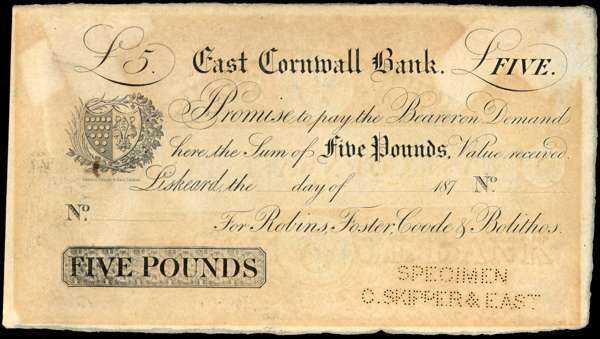 £ 5. East Cornwall Bank. £ FIVE.
I Promise to pay the Bearer on Demand
here, the Sum of Five Pounds, Value received.
Liskeard, the day of 187 No.
No.
For Robins, Foster, Coode & Bolithos.
FIVE POUNDS
SPECIMEN
C. SKIPPER & EAST